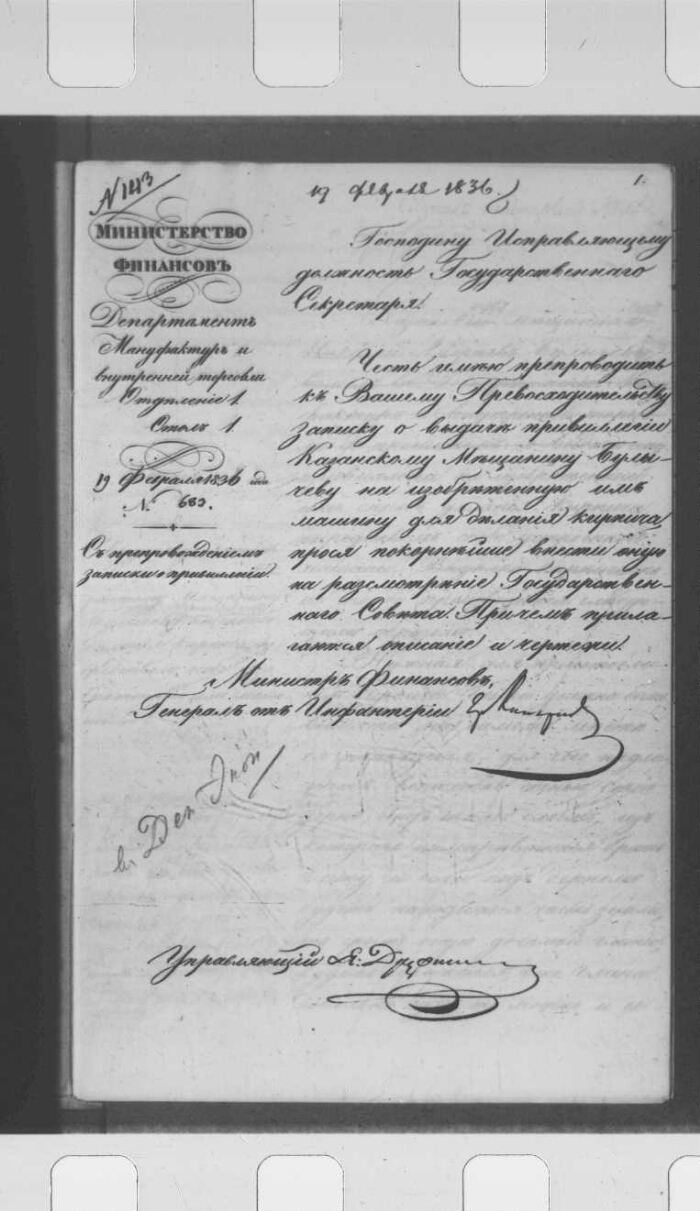 N 143
19 февраля 1836.
1.
Министерство
Финансовъ
Департаментъ
Мануфактуръ и
внутренней торговли
Отдѣленіе 1.
Столъ 1.
19 Февраля 1836 года
N. 683.
Съ препровожденіемъ
записки о привиллегіи.
Господину Исправляющему
должность Государственнаго
Секретаря.
Честь имѣю препроводить
къ Вашему Превосходительству
записку о выдачѣ привиллегіи
Казанскому Мѣщанину Булы-
чеву на изобрѣтенную имъ
машину для дѣланія кирпича,
прося покорнѣйше внести оную
на разсмотрѣніе Государствен-
наго Совѣта. Причемъ прила-
гаются описаніе и чертежи.
Министръ Финансовъ,
Генералъ отъ Инфантеріи Гр. Канкринъ
въ Деп. Экон
Управляющій Я. Дружининъ